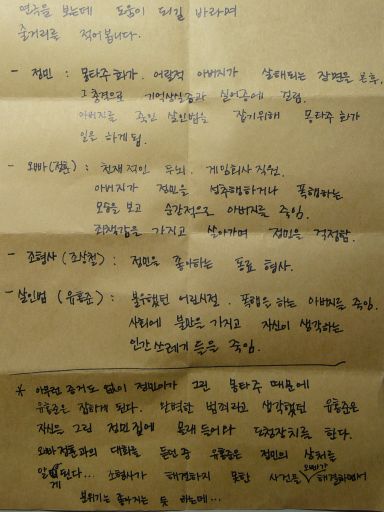 연극을 보는데 도움이 되길 바라며
줄거리를 적어봅니다.
- 정민 : 몽타주 화가. 어릴적 아버지가 살해되는 장면을 본 후,
그 충격으로 기억상실증과 실어증에 걸림.
아버지를 죽인 살인범을 잡기위해 몽타주 화가
일을 하게 됨.
- 오빠(정훈) : 천재적인 두뇌. 게임회사 직원.
아버지가 정민을 성추행하거나 폭행하는
모습을 보고 순간적으로 아버지를 죽임.
죄책감을 가지고 살아가며 정민을 걱정함.
- 조형사 (조상철) : 정민을 좋아하는 동료 형사.
- 살인범 (유홍준) : 불우했던 어린시절. 폭행을 하는 아버지를 죽임.
사회에 불만을 가지고 자신이 생각하는
인간 쓰레기 들을 죽임.
* 아무런 증거도 없이 정민이가 그린 몽타주 때문에
유홍준은 잡히게 된다. 완벽한 범죄라고 생각했던 유홍준은
자신을 그린 정민 집에 몰래 들어와 도청장치를 한다.
오빠 정훈과의 대화를 듣던 중 유홍준은 정민의 상처를
알게 된다... 조형사가 해결하지 못한 사건을 오빠가 해결하면서
분위기는 좋아지는 듯 하는데...